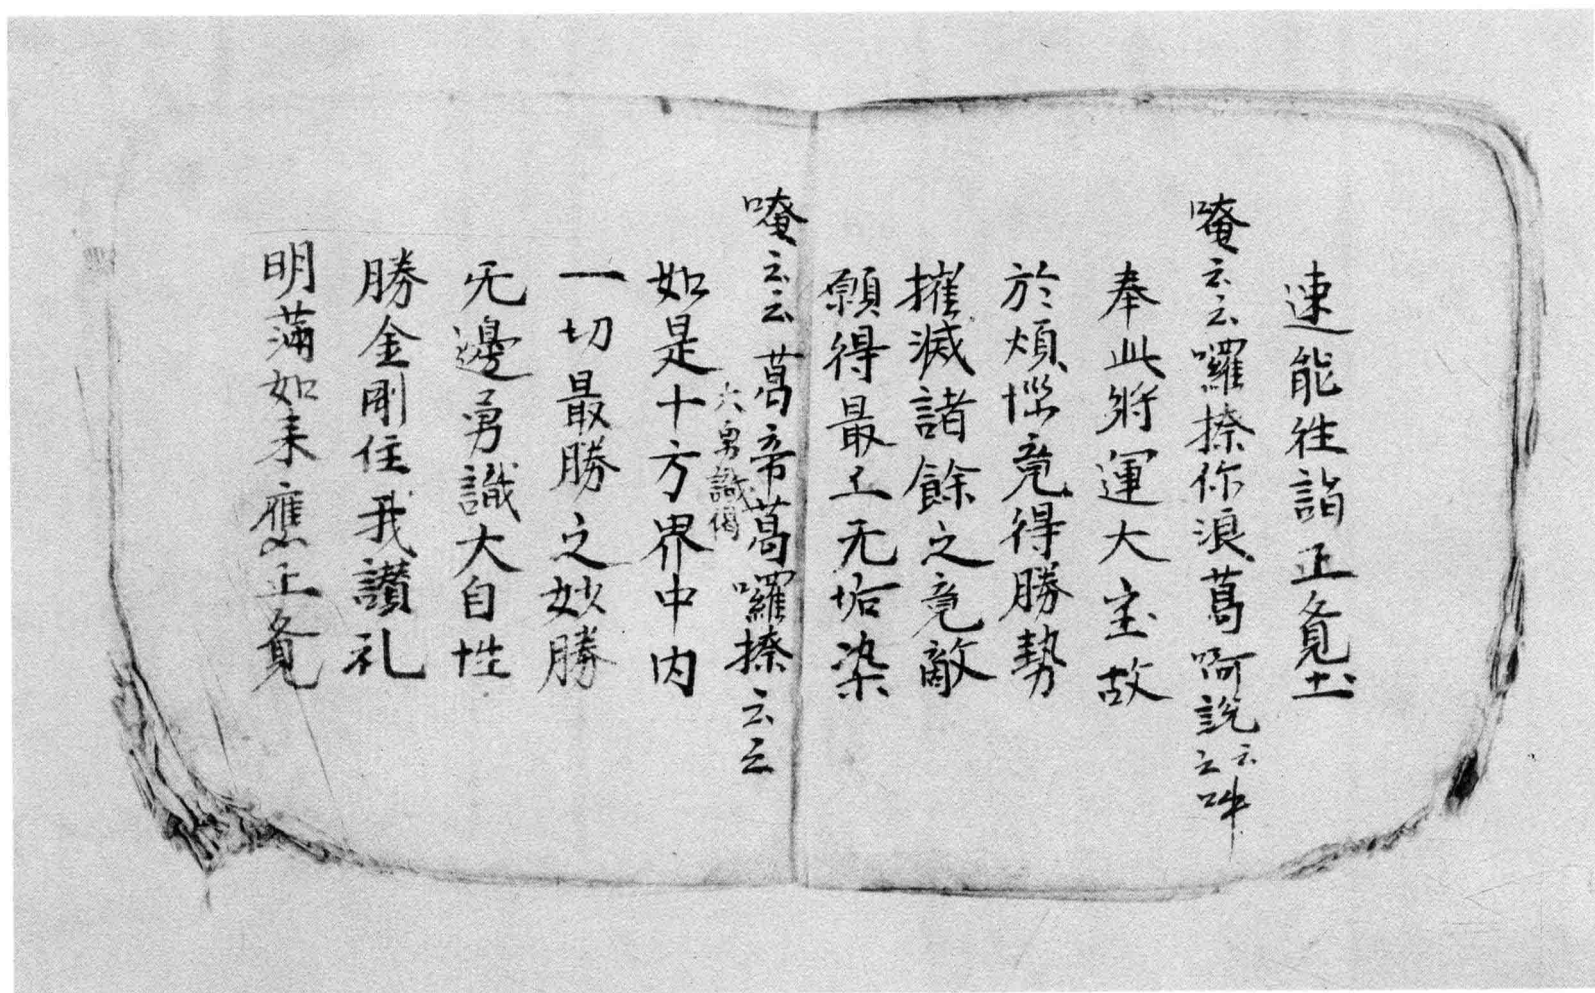 速能往詣正覺土
唵云云囉捺你浪葛啊說云云吽
奉此將運大宝故
於煩惱竟得勝勢
摧滅諸餘之竟敵
願得最上无垢染
唵云云葛帝葛囉捺云云
大勇識偈
如是十方界中内
一切最勝之妙勝
无邊勇識大自性
勝金剛住我讃礼
明滿如来應正覺